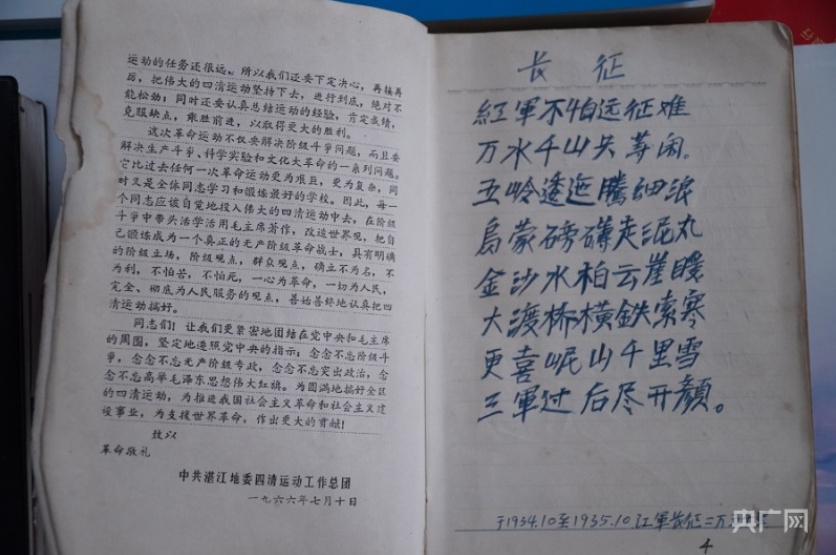 运动的任务还很远。所以我们还要下定决心，再接再
厉，把伟大的四清运动坚持下去，进行到底，绝对不
能松劲；同时还要认真总结运动的经验，肯定成绩，
克服缺点，乘胜前进，以取得更大的胜利。
这次革命运动不仅要解决阶级斗争问题，而且要
解决生产斗争、科学实验和文化大革命的一系列问题。
它比过去任何一次革命运动更为艰巨，更为复杂，同
时又是全体同志学习和锻炼最好的学校。因此，每一
个同志应该自觉地投入伟大的四清运动中去，在阶级
斗争中带头活学活用毛主席著作，改造世界观，把自
己锻炼成为一个真正的无产阶级革命战士，具有明确
的阶级立场，阶级观点，群众观点，确立不为名，不
为利，不怕苦，不怕死，一心为革命，一切为人民，
完全、彻底为人民服务的观点，善始善终地认真把四
清运动搞好。
同志们！让我们更紧密地团结在党中央和毛主席
的周围，坚定地遵照党中央的指示；念念不忘阶级斗
争，念念不忘无产阶级专政，念念不忘突出政治，念
念不忘高举毛泽东思想伟大红旗。为圆满地搞好全区
的四清运动，为推进我国社会主义革命和社会主义建
设事业，为支援世界革命，作出更大的贡献！
致以
革命敬礼
中共湛江地委四清运动工作总团
一九六六年七月十日
长征
紅軍不怕远征难
万水千山只等闲。
五岭逶迤騰细浪
烏蒙磅礴走泥丸
金沙水拍云崖暖
大渡桥横鉄索寒
更喜岷山千里雪
三軍过后尽开顔。
于1934.10至1935.10江軍長征二万
4
央广网